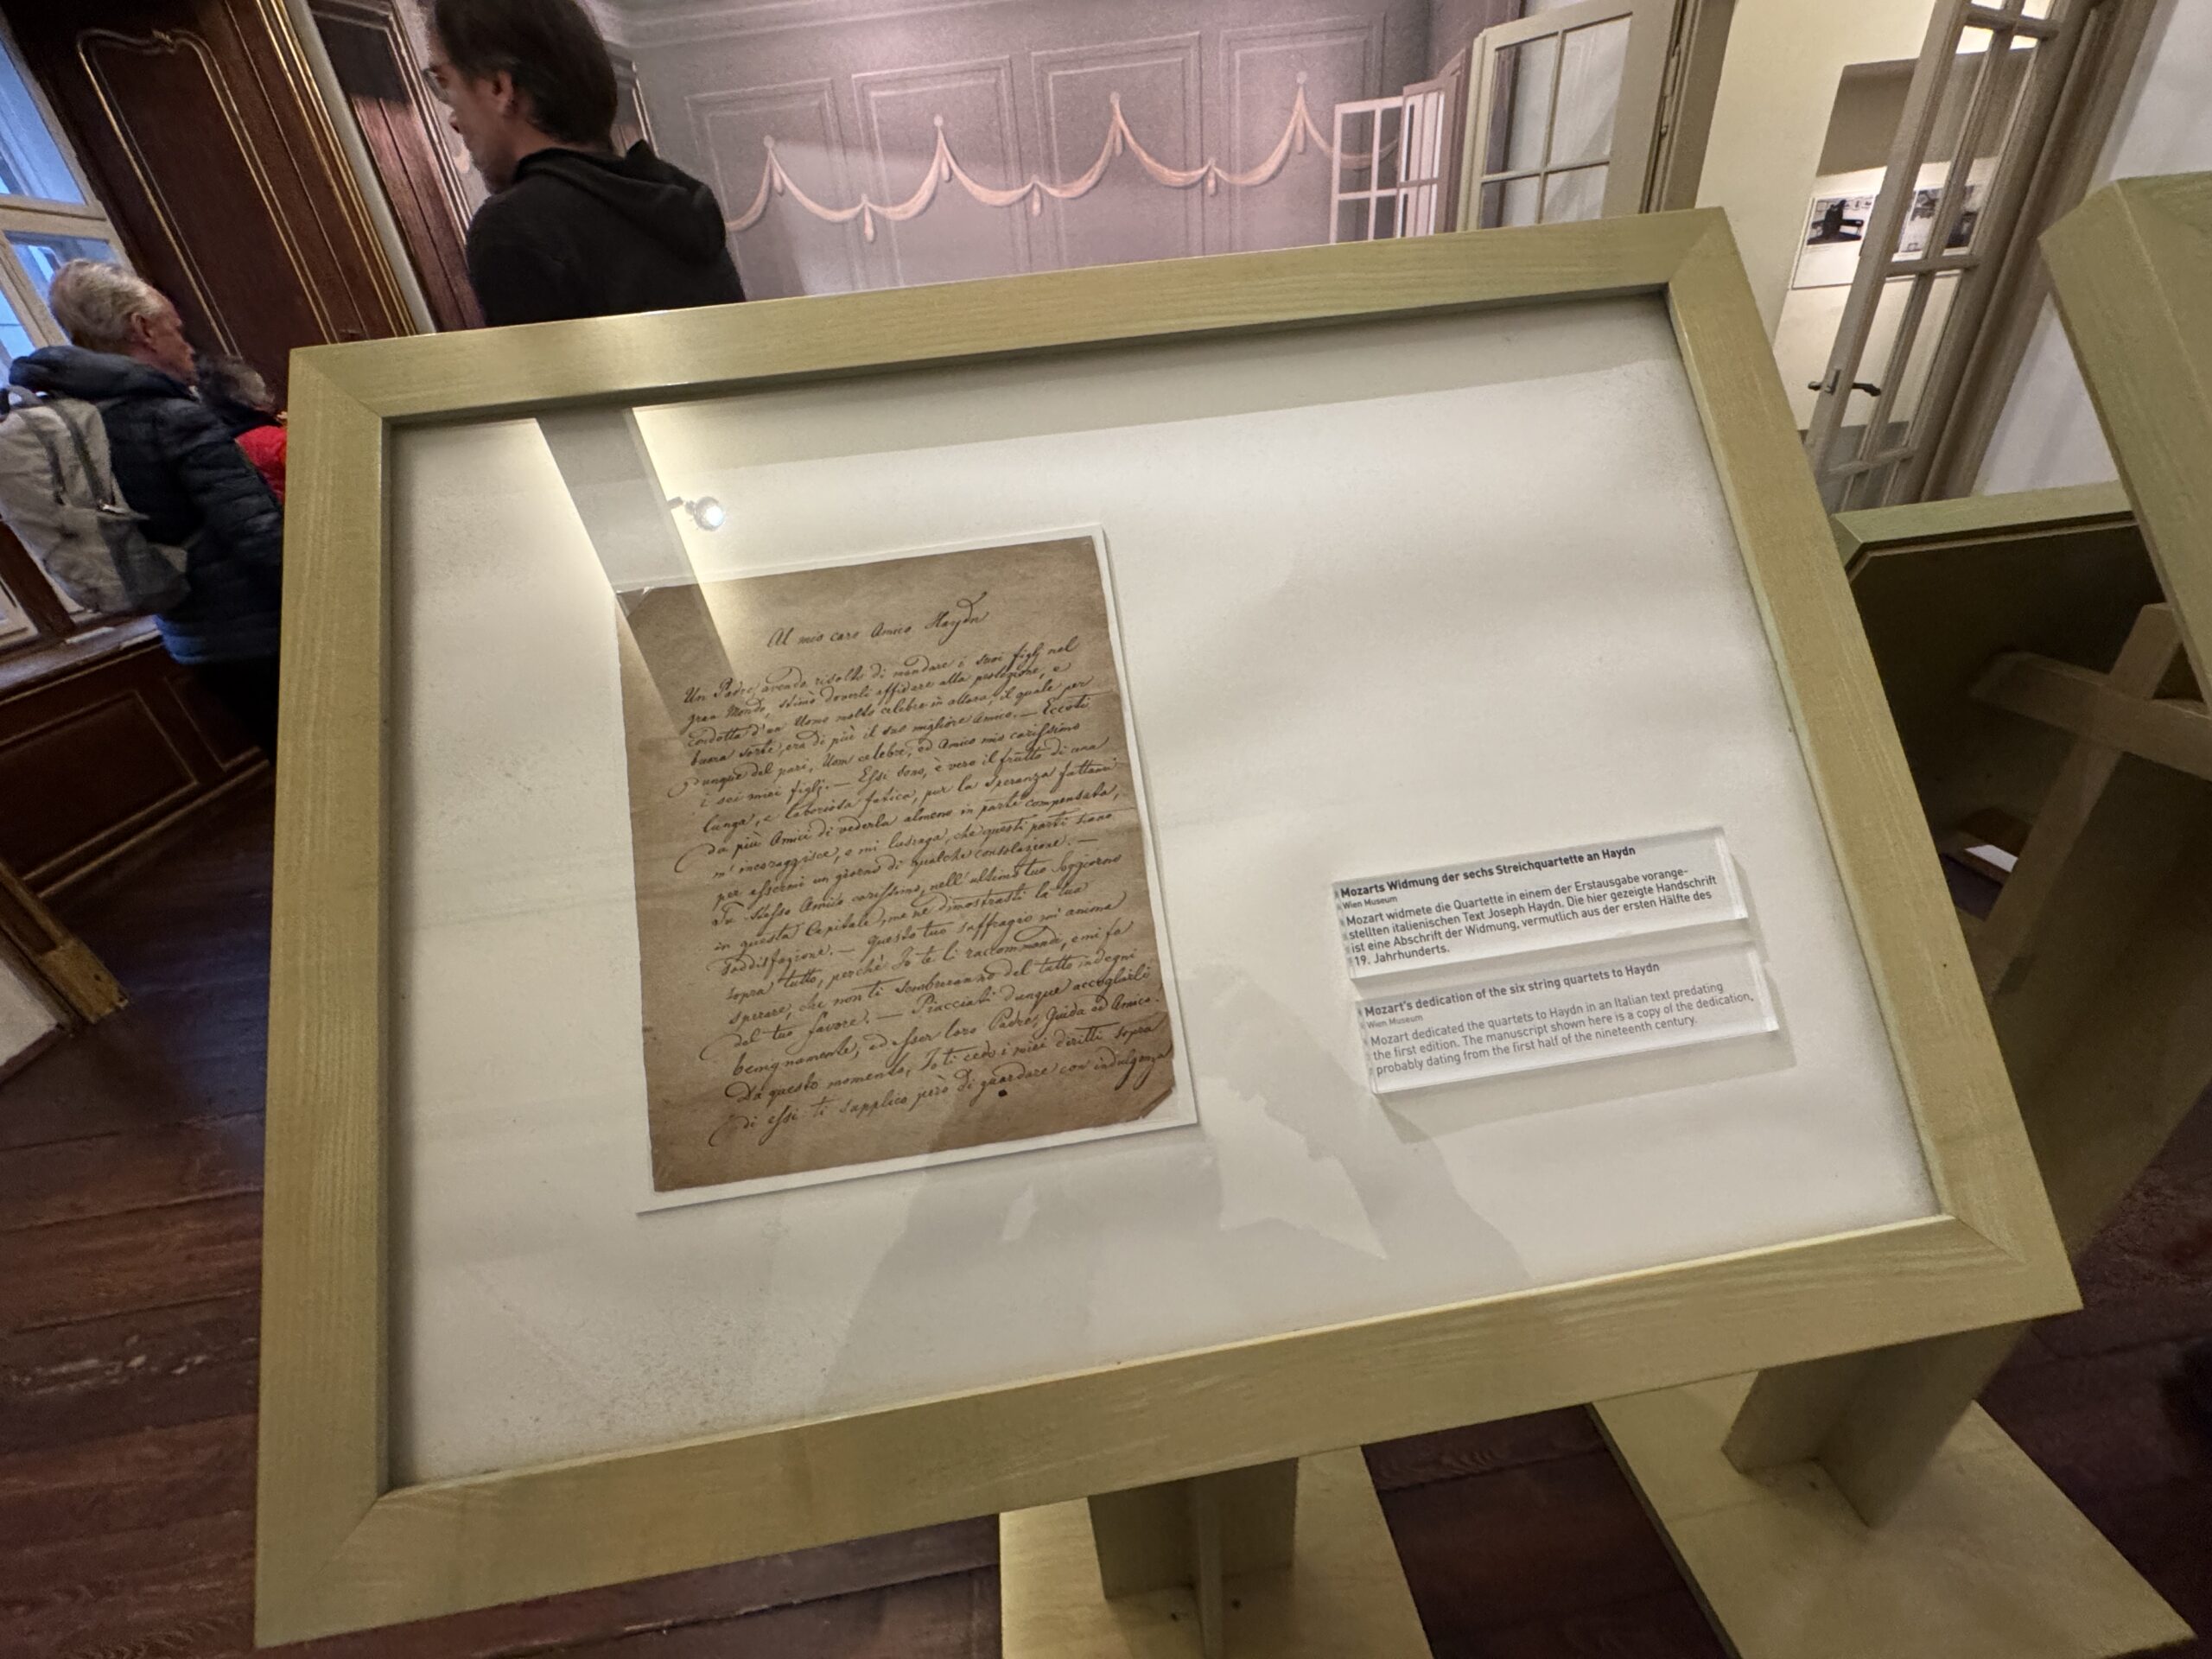 Al mio caro Amico Haydn
Un Padre, avendo risolto di mandare i suoi figlj nel
gran Mondo, stimò doverli affidare alla protezione, e
condotta d'un Uomo molto celebre in allora, il quale per
buona sorte, era di più il suo migliore Amico. — Eccoti
dunque del pari, Uom celebre, ed Amico mio carissimo
i sei miei figlj. — Essi sono, è vero il frutto di una
lunga, e laboriosa fatica, pur la speranza fattami
da più Amici di vederla almeno in parte compensata,
m'incoraggisce, e mi lusinga, che questi parti siano
per essermi un giorno di qualche consolazione. —
Tu stesso Amico carissimo, nell'ultimo tuo soggiorno
in questa Capitale, me ne dimostrasti la tua
soddisfazione. — Questo tuo suffragio mi anima
sopra tutto, perchè Io te li raccommandi, e mi fa
sperare, che non ti sembreranno del tutto indegni
del tuo favore. — Piacciati dunque accoglierli
benignamente, ed esser loro Padre, Guida ed Amico.
Da questo momento, Io ti cedo i miei diritti sopra
di essi ti supplico però di guardare con indulgenza
Mozarts Widmung der sechs Streichquartette an Haydn
Wien Museum
Mozart widmete die Quartette in einem der Erstausgabe vorange-
stellten italienischen Text Joseph Haydn. Die hier gezeigte Handschrift
ist eine Abschrift der Widmung, vermutlich aus der ersten Hälfte des
19. Jahrhunderts.
Mozart's dedication of the six string quartets to Haydn
Wien Museum
Mozart dedicated the quartets to Haydn in an Italian text predating
the first edition. The manuscript shown here is a copy of the dedication,
probably dating from the first half of the nineteenth century.